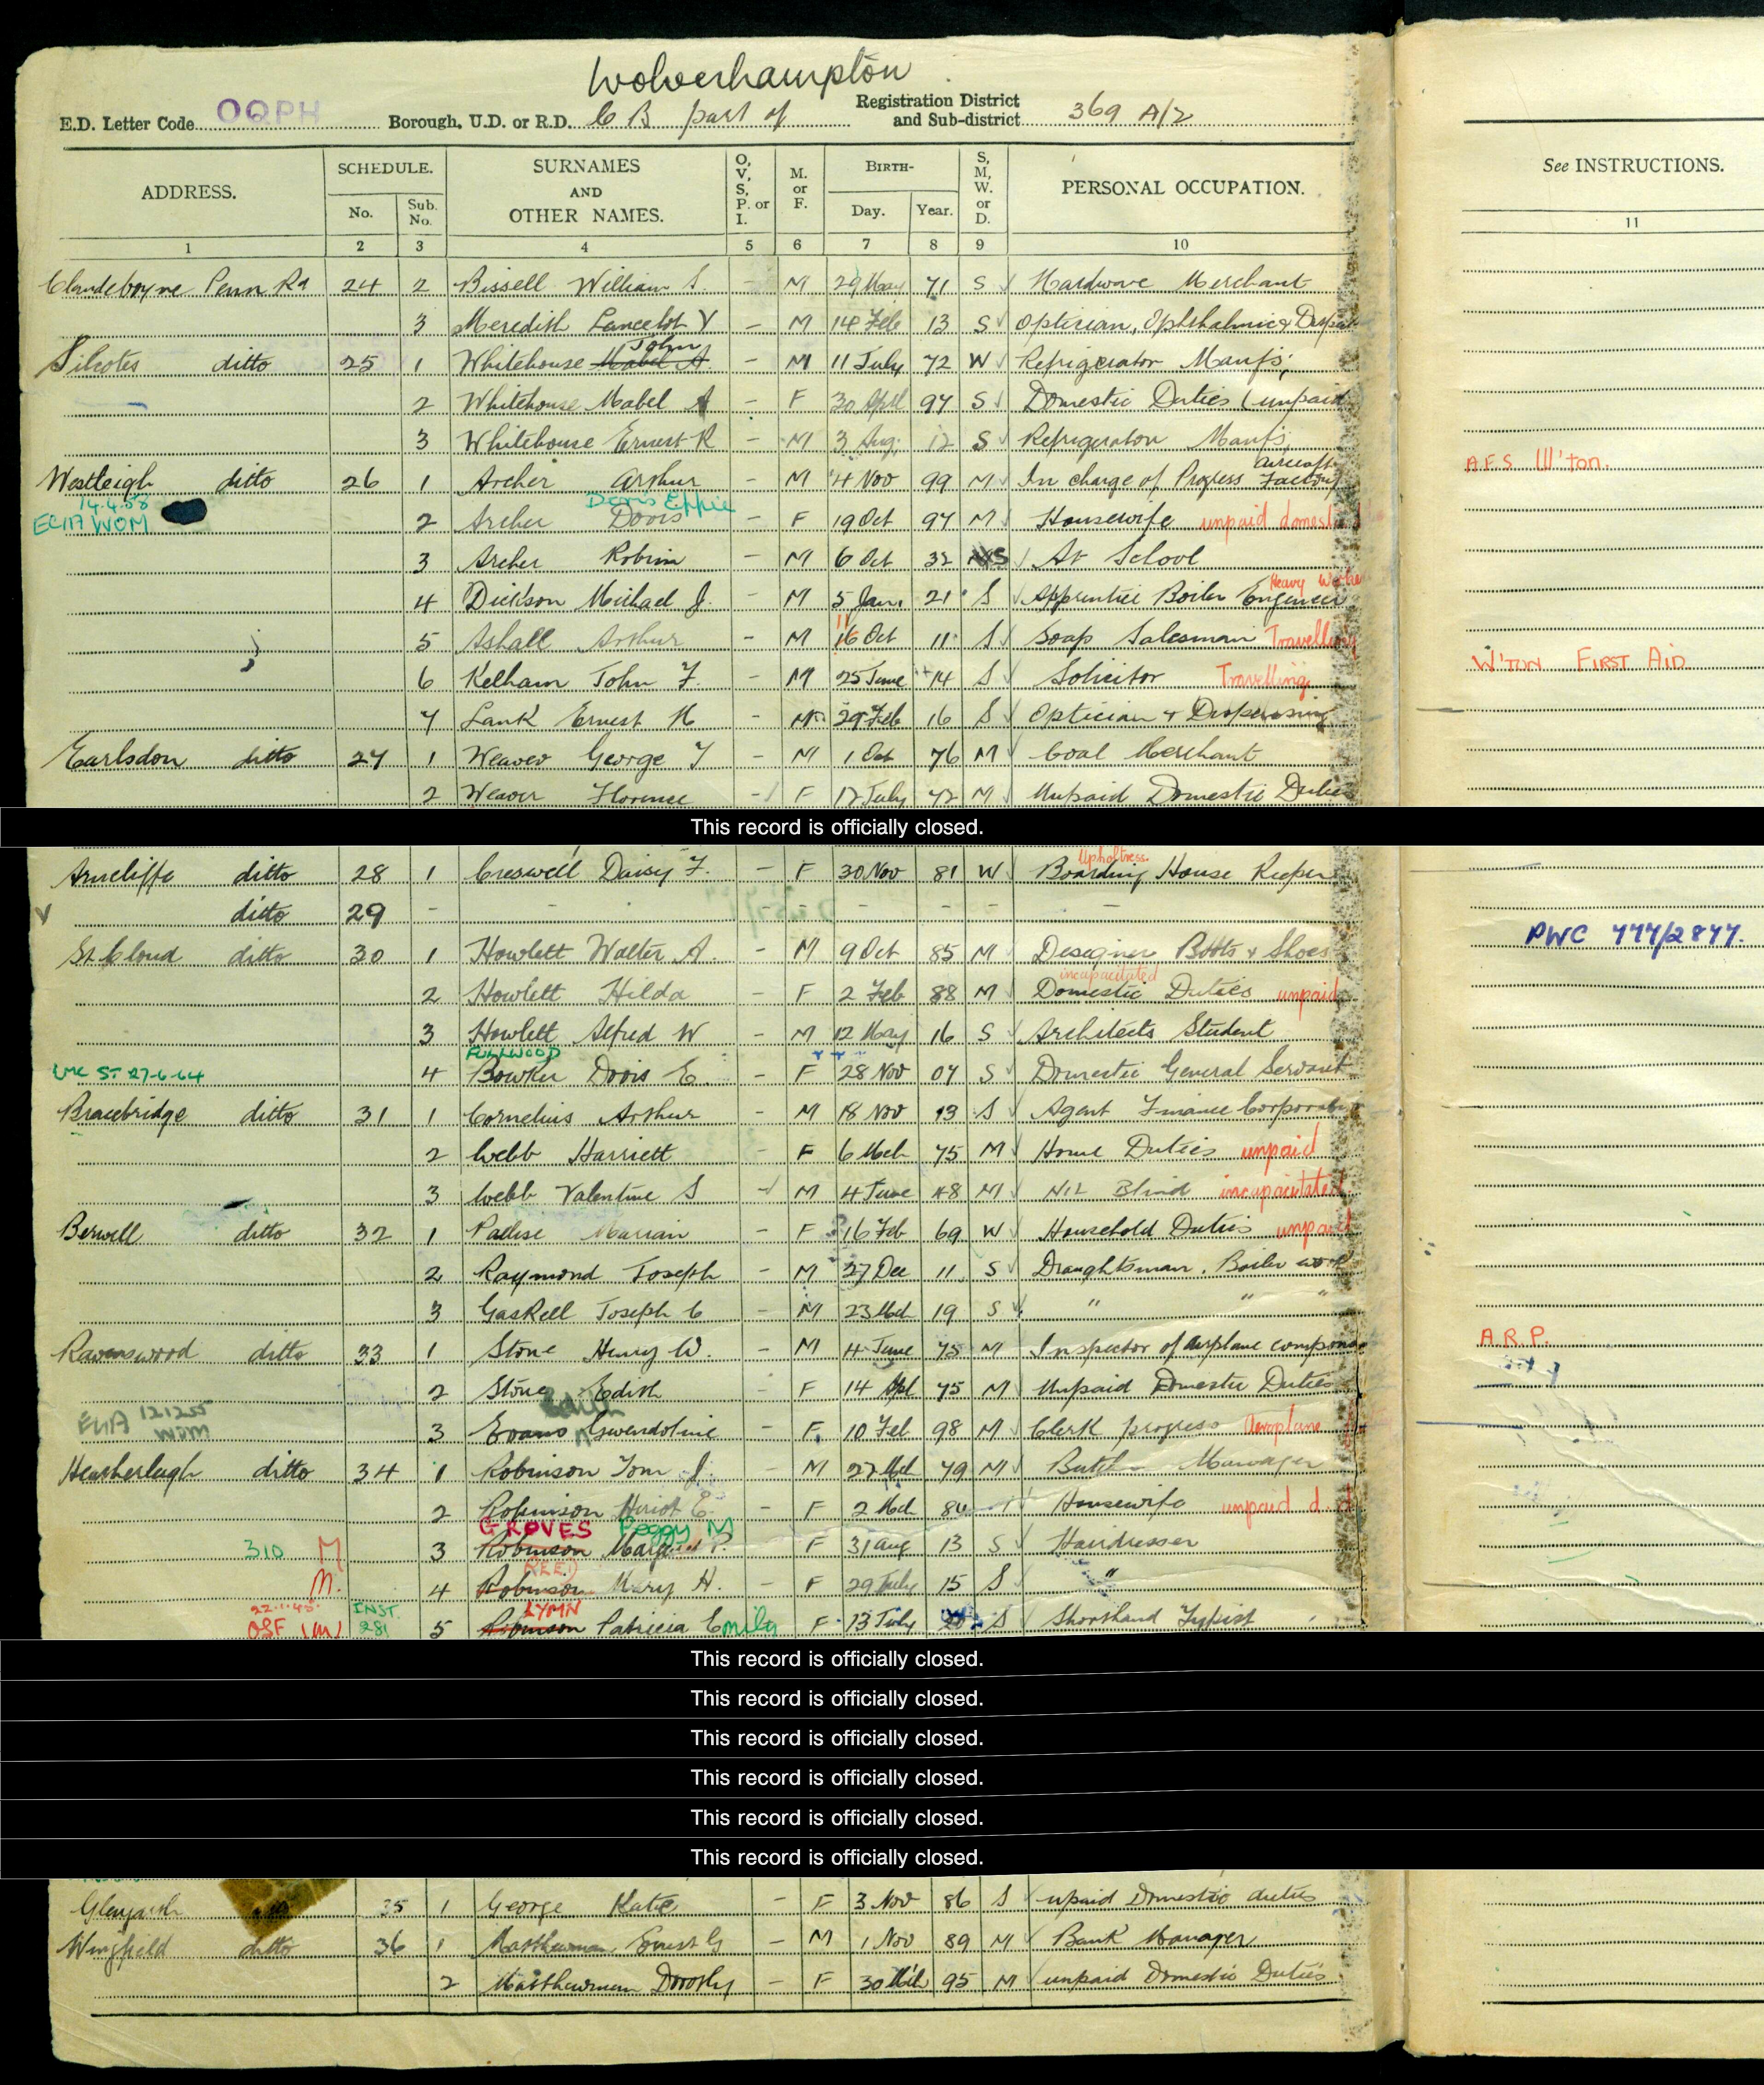 Wolverhampton
E.D. Letter Code OQPH Borough, U.D. or R.D. C B part of Registration District and Sub-district 369 A/2
ADDRESS. SCHEDULE. No. Sub. No. SURNAMES AND OTHER NAMES. O, V, S, P. or I. M. or F. BIRTH- Day. Year. S, M, W. or D. PERSONAL OCCUPATION. See INSTRUCTIONS.
1 2 3 4 5 6 7 8 9 10 11
Clandeboyne Penn Rd 24 2 Bissell William S. - M 29 May 71 S Hardware Merchant
3 Meredith Lancelot V - M 14 Feb 13 S Optician, Ophthalmic &
John
Silcotes ditto 25 1 Whitehouse Mabel A. - M 11 July 72 W Refrigerator Manfs;
2 Whitehouse Mabel A - F 30 Apl 97 S Domestic Duties (unpaid
3 Whitehouse Ernest R - M 3 Aug. 12 S Refrigerator Manfs
aircraft A.F.S W'ton.
Westleigh ditto 26 1 Archer Arthur - M 4 Nov 99 M In charge of Progress Factory
14.4.58 Doris Effie
WOM 2 Archer Doris - F 19 Oct 97 M Housewife unpaid domest
3 Archer Robin - M 6 Oct 32 S At School
Heavy
4 Dickson Michael J. - M 5 Jan. 21 S Apprentice Boiler Engineer
11
5 Ashall Arthur - M 16 Oct 11 S Soap Salesman Travelling
W'TON FIRST AID
6 Kelham John F. - M 25 June 14 S Solicitor Travelling
7 Lank Ernest H - M 29 Feb 16 S Optician & Dispensing
Earlsdon ditto 27 1 Weaver George T - M 1 Oct 76 M Coal Merchant
2 Weaver Florence - F 12 July 72 M Unpaid Domestic Duties
This record is officially closed.
Upholtress.
Arncliffe ditto 28 1 Creswell Daisy F. - F 30 Nov 81 W Boarding House Keeper
ditto 29 - - - - - - - -
PWC 777/2877.
St. Cloud ditto 30 1 Howlett Walter A. - M 9 Oct 85 M Designer Boots & Shoes
incapacitated
2 Howlett Hilda - F 2 Feb 88 M Domestic Duties unpaid
3 Howlett Alfred W - M 12 May 16 S Architects Student
FULLWOOD
27-6-64 4 Bowker Doris E. - F 28 Nov 07 S Domestic General Servant
Bracebridge ditto 31 1 Cornelius Arthur - M 18 Nov 13 S Agent Finance Corporation
2 Webb Harriett - F 6 Mch 75 M Home Duties unpaid
3 Webb Valentine S - M 4 June 48 M Nil Blind incapacitated
Berwell ditto 32 1 Marian - F 16 Feb 69 W Household Duties unpaid
2 Raymond Joseph - M 27 Dec 11 S Draughtsman. Boiler work
3 Gaskell Joseph C - M 23 Mch 19 S " " "
A.R.P.
Ravenswood ditto 33 1 Stone Henry W. - M 4 June 75 M Inspector of airplane
2 Stone Edith - F 14 Apl 75 M Unpaid Domestic Duties
WOM
3 Evans Gwendoline - F. 10 Feb 98 M Clerk progress Aeroplane
Heatherleigh ditto 34 1 Robinson Tom J. - M 27 Mch 79 M Manager
2 Robinson E. - F 2 Mch Housewife unpaid d
GROVES Peggy M
310 M 3 Robinson P. F 31 Aug 13 S Hairdresser
REED
M. 4 Robinson Mary H. - F 29 July 15 S "
22.1.45. INST. LYMN
OSF (M) 281 5 Robinson Patricia Emily F 13 July S Shorthand Typist
This record is officially closed.
This record is officially closed.
This record is officially closed.
This record is officially closed.
This record is officially closed.
This record is officially closed.
35 1 George Katie - F 3 Nov 86 S unpaid Domestic duties
Wingfield ditto 36 1 Matthewman Ernest G - M 1 Nov 89 M Bank Manager
2 Matthewman Dorothy - F 30 Mch 95 M unpaid Domestic Duties